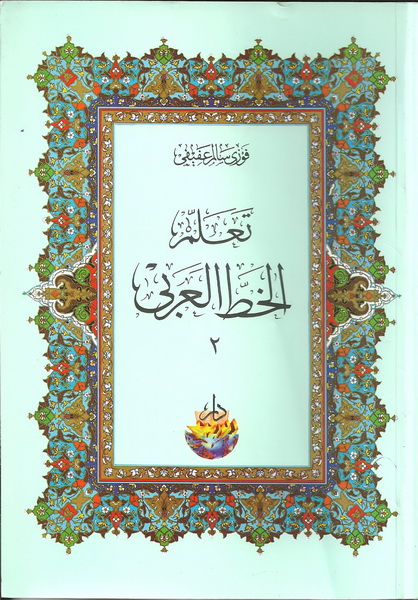 فوزى سالم عفيفى
تعلم
الخط العربى
٢
دار